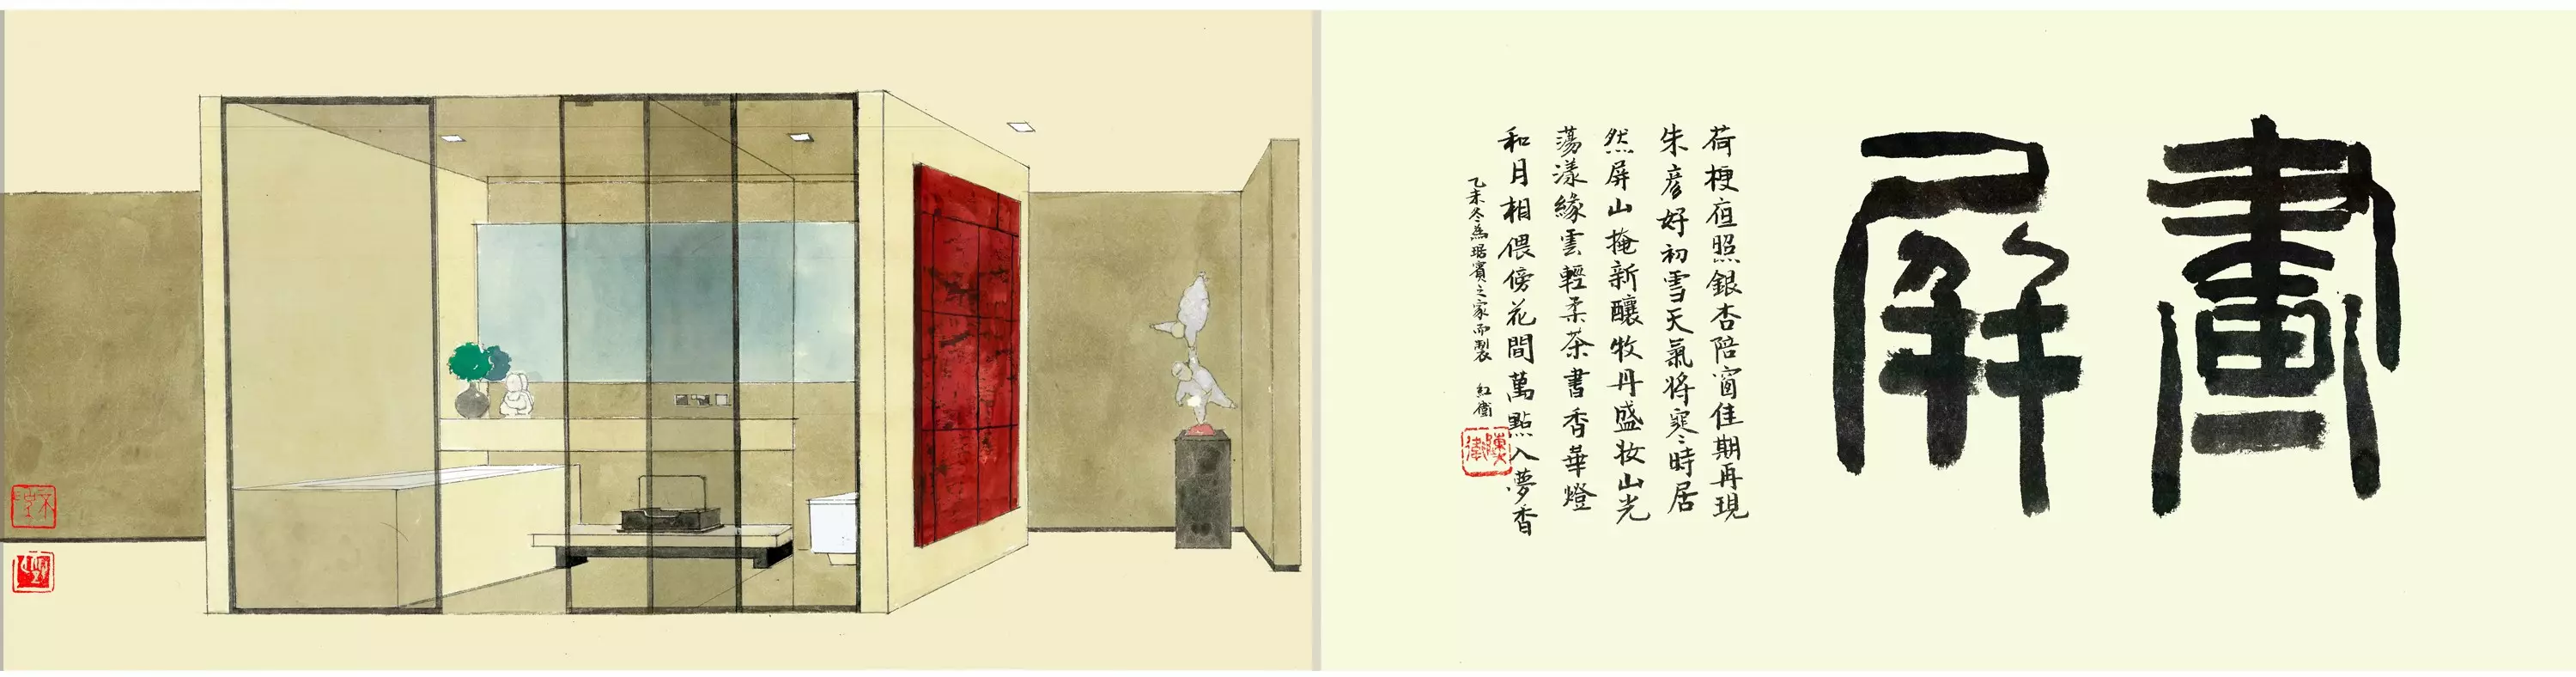 畫屏
荷梗亱照銀杏陪窗佳期再現
朱彦好初雪天氣將寒之時居
然屏山掩新釀牧丹盛妝山光
蕩漾緣雲輕柔茶書香華燈
和月相偎傍花間萬點入夢香
乙未冬為琚賓之家而製 紅衛